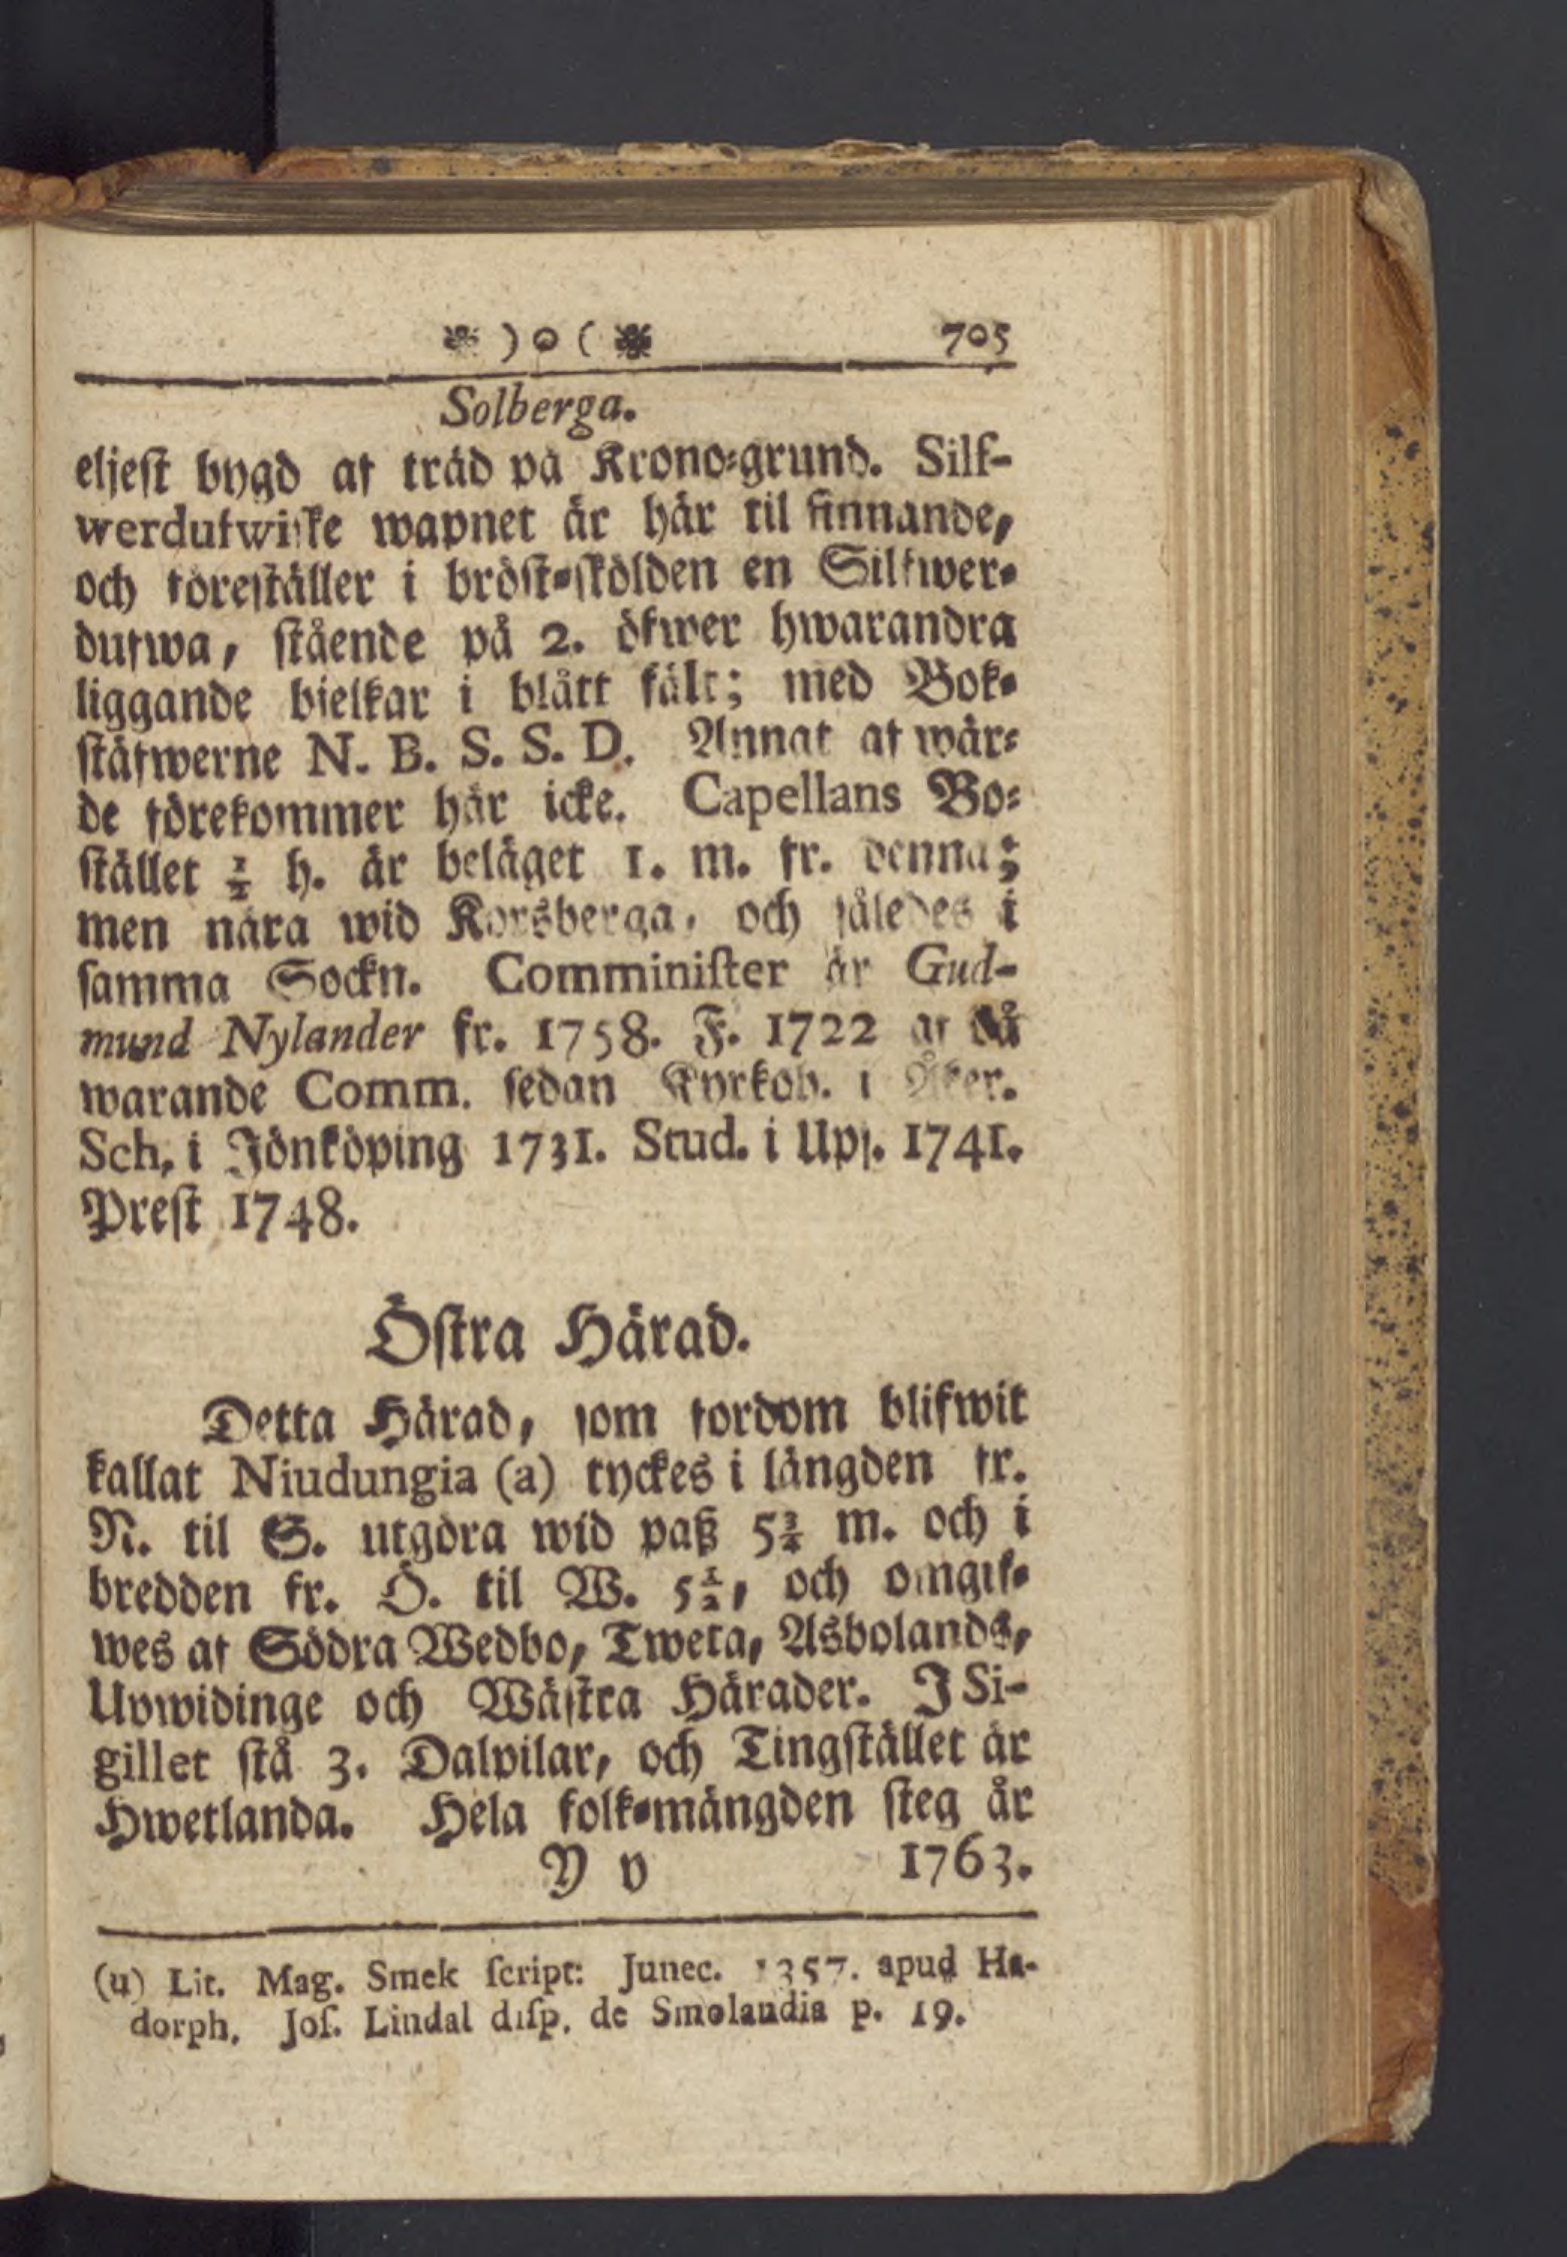 ❧ ) o ( ❧ 705
Solberga.
eljeſt bygd af träd på Krono-grund. Silf-
werdufwiſke wapnet är här til finnande,
och föreſtäller i bröſt-ſkölden en Silfwer-
dufwa, ſtående på 2. öfwer hwarandra
liggande bielkar i blått fält; med Bok-
ſtäfwerne N. B. S. S. D. Annat af wär-
de förekommer här icke. Capellans Bo-
ſtället ½ h. är beläget 1. m. fr. denna;
men nära wid Korsberga, och ſåledes i
ſamma Sockn. Comminiſter är Gud-
mund Nylander fr. 1758. F. 1722 af då
warande Comm. ſedan Kyrkoh. i Åker.
Sch, i Jönköping 1731. Stud. i Upſ. 1741.
Preſt 1748.
Öſtra Härad.
Detta Härad, ſom fordom blifwit
kallat Niudungia (a) tyckes i längden fr.
N. til S. utgöra wid paß 5¾ m. och i
bredden fr. Ö. til W. 5½, och omgif-
wes af Södra Wedbo, Tweta, Asbolands,
Upwidinge och Wäſtra Härader. I Si-
gillet ſtå 3. Dalpilar, och Tingſtället är
Hwetlanda. Hela folk-mängden ſteg år
Y y 1763.
(u) Lit. Mag. Smek ſcript: Junec. 1357. apud Ha-
dorph. Joſ. Lindal diſp. de Smolandia p. 19.